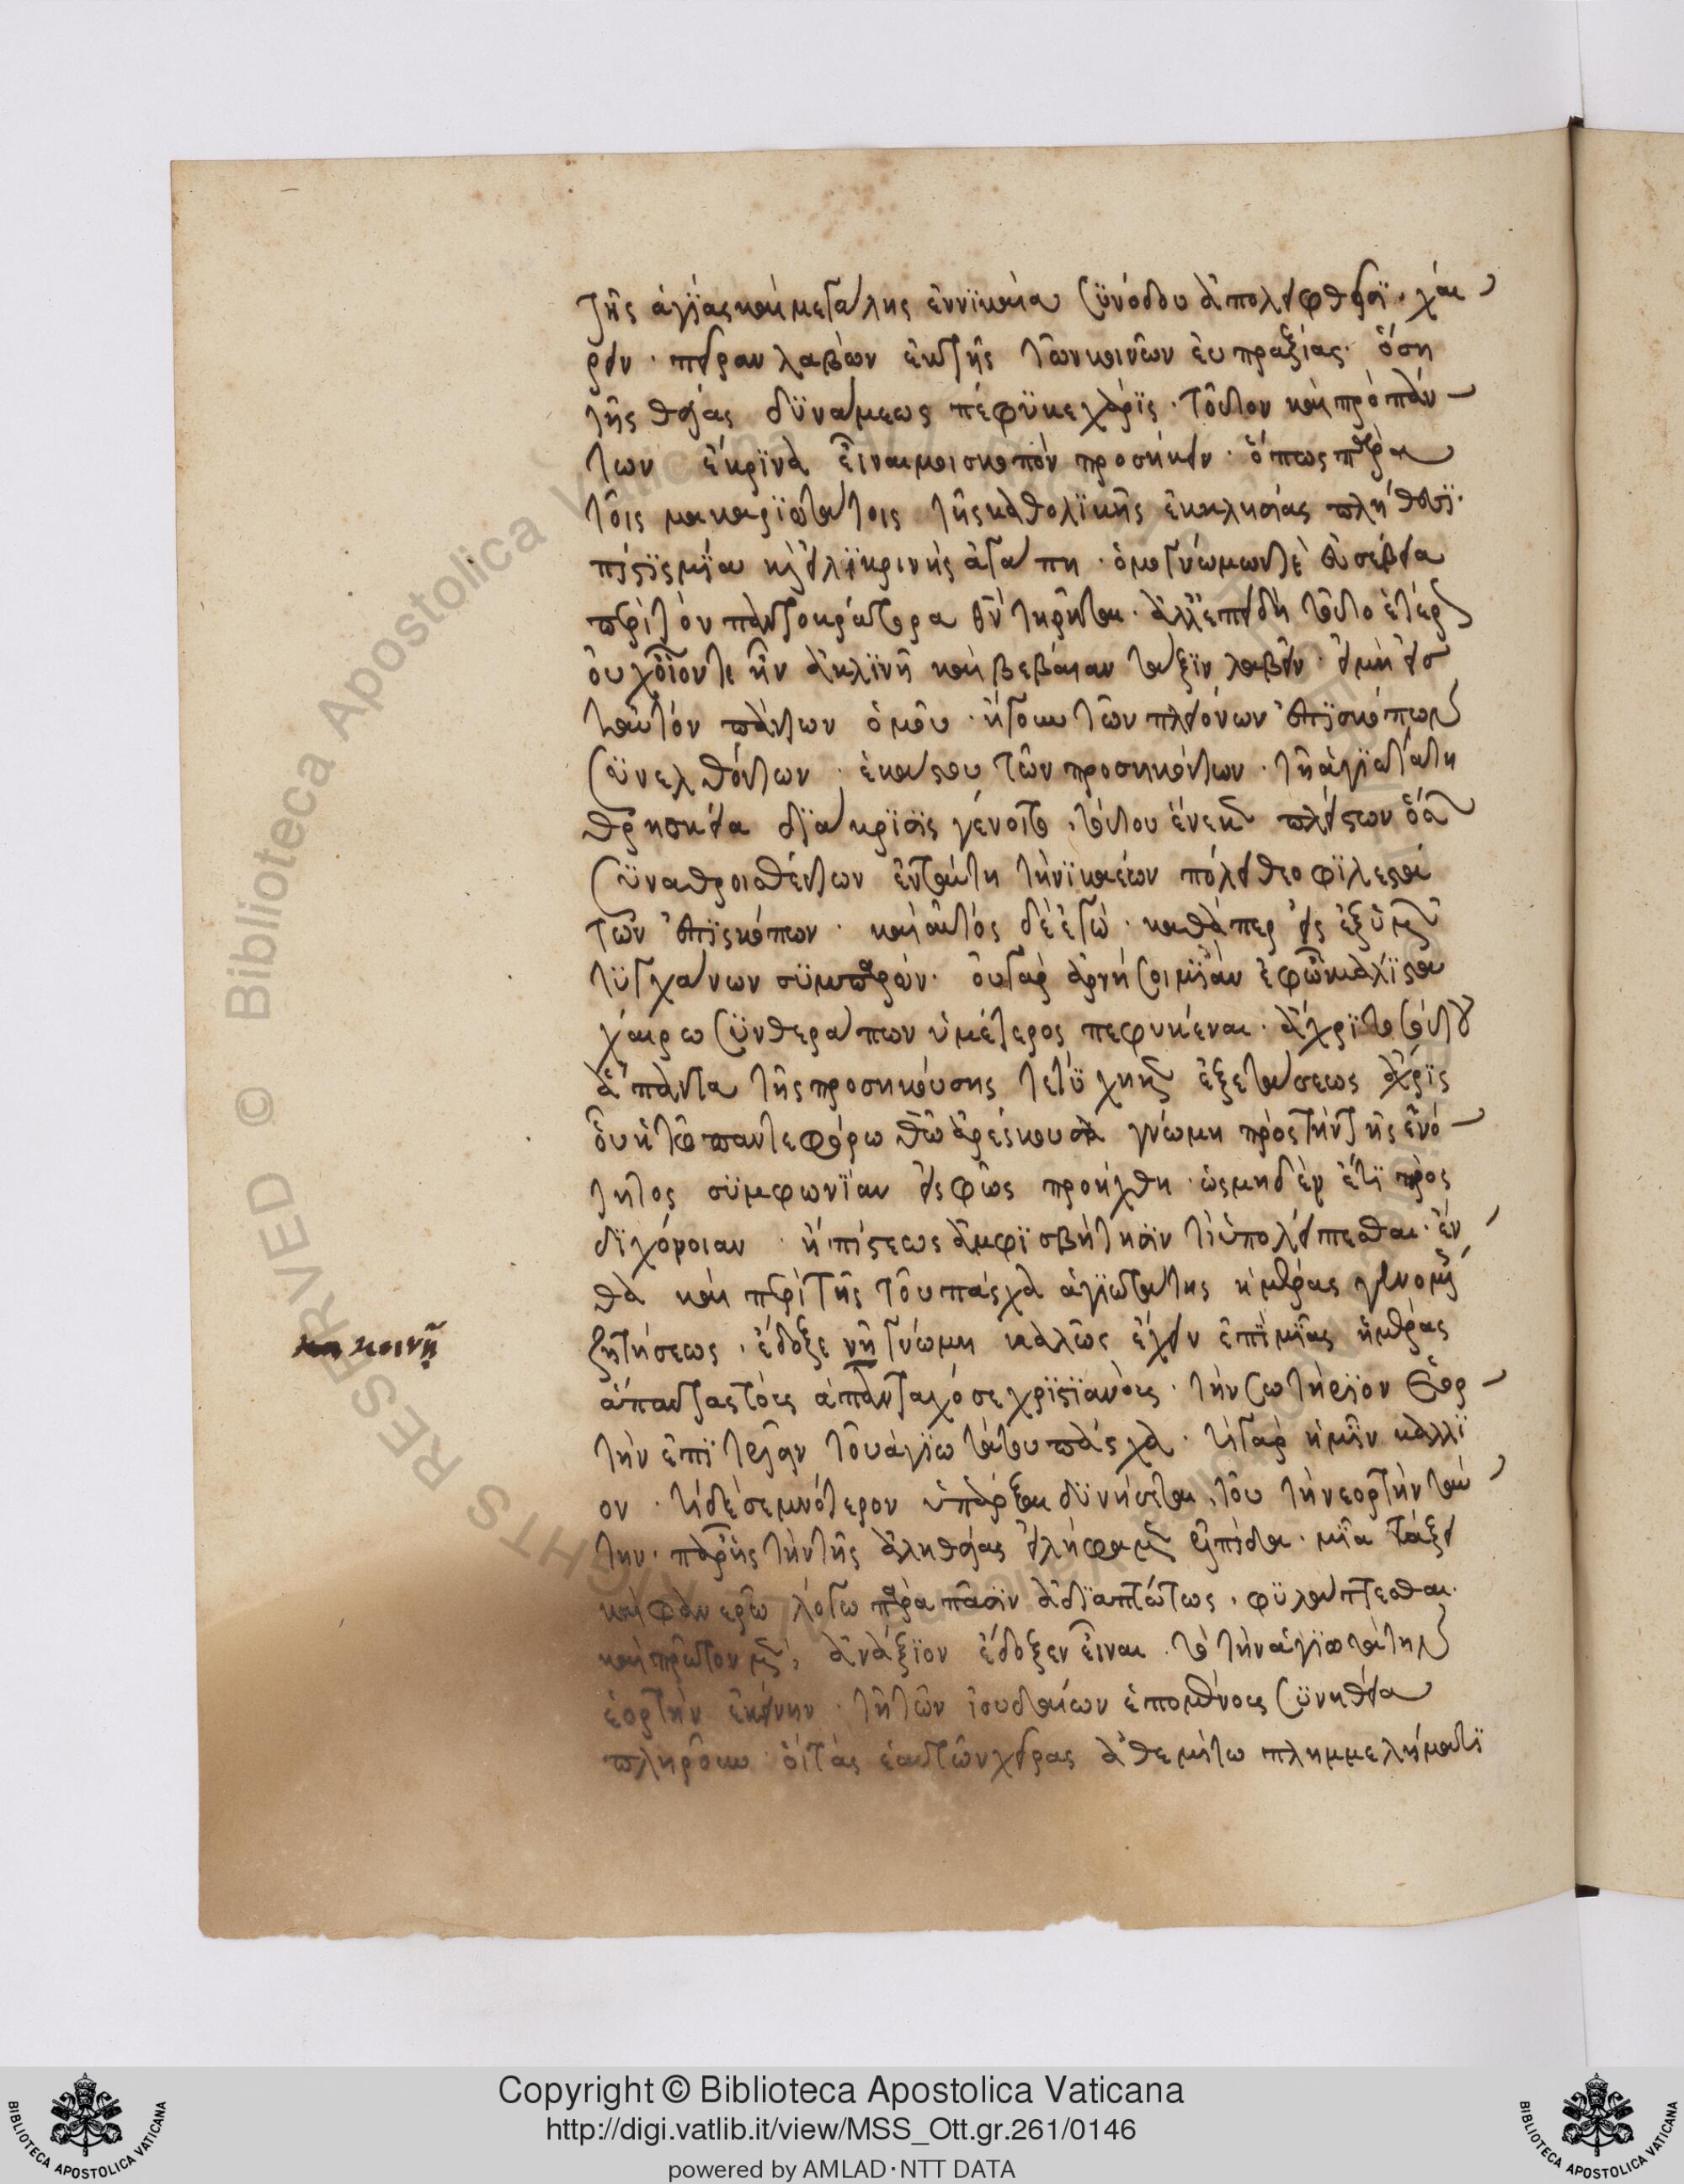 τῆς ἁγίας καὶ μεγάλης ἐν νϊκαία συνόδου ἀπολειφθεῖσϊ. χαί
ρειν. πεῖραν λαβὼν ἐκ τῆς τῶν κοινῶν ἐυπραξίας. ὅση
τῆς θείας δϋνάμεως πέφϋκε χάρϊς. τοῦτον καὶ πρὸ πάν
των ἔκρϊνὰ εἶναι μοι σκοπὸν προσήκειν. ὅπως παρὰ
τοῖς μακαρϊωτάτοις τῆς καθολϊκῆς ἐκκλησίας πλήθεσϊ.
πίστϊς μΐα καὶ εἰλϊκρινὴς ἀγάπη. ὁμογνώμων τὲ εὐσέβεια
περὶ τὸν παντοκράτορα θν̄ τηρῆται. ἀλλ' ἐπειδὴ τοῦτο ἑτέρως
ὀυχ οἷον τε ἦν ἀκλϊνῆ καὶ βεβαίαν τάξϊν λαβεῖν. εἰ μὴ εἰσ
ταὐτὸν πάντων ὁμοῦ. ἤγουν τῶν πλειόνων ἐπϊσκόπων
συνελθόντων. ἑκάστου τῶν προσηκόντων. τῆ ἁγϊωτάτη
θρησκεία δϊάκρϊσϊς γένοιτο. τούτου ἕνεκεν πλείστων ὅσων
συναθροισθέντων ἐν ταύτη τῆ νϊκαέων πόλει θεοφϊλεστά
των ἐπϊσκόπων. καὶ αὐτὸς δὲ ἐγὼ. καθάπερ εἷς ἐξ ὑμῶν
τϋγχάνων σϋμπαρών. οὐ γὰρ ἀρνήσοιμϊ ἂν ἐφ' ὧ μάλϊστα
χαίρω συνθεράπων ὑμέτερος πεφυκέναι. ἄχρϊ τοσούτου
ἅπαντα τῆς προσηκούσης τετϋχηκεν ἐξετάσεως ἄχρϊς
οὗ ἡ τῶ παντεφόρω θῶ ἀρέσκουσα γνώμη πρὸς τὴν τῆς ἑνό
τητος σϋμφωνΐαν εἰς φῶς προήχθη. ὡς μηδὲν ἔτϊ πρὸς
δϊχόνοιαν. ἢ πίστεως ἀμφϊσβήτησϊν τὶ ὑπολείπεσθαι. ἔν
θα καὶ περὶ τῆς τοῦ πάσχα ἁγϊωτάτης ἡμέρας γενομένης
ζητήσεως. ἔδοξε νῆ γνώμη καλῶς ἔχειν ἐπϊ μΐας ἡμέρας
κοινῆ
ἅπαντας τοὺς ἁπανταχόσε χρϊστϊανοὺς. τὴν σωτήρϊον ἑορ
τὴν ἐπϊτελεῖν τοῦ ἁγϊωτάτου πάσχα. τί γὰρ ἡμῖν κάλλϊ
ον. τί δὲ σεμνότερον ὑπάρξαι δϋνήσεται. τοῦ τὴν ἑορτὴν ταύ
την. παρ' ἧς τὴν τῆς ἀληθείας εἰλήφαμεν ἐλπίδα. μΐα τάξει
καὶ φανερῶ λόγω παρὰ πᾶσϊν ἀδϊαπτώτως. φϋλάττεσθαι.
καὶ πρῶτον μὲν, ἀνάξϊον ἔδοξεν εἶναι. τὸ τὴν ἁγϊωτάτην
ἑορτὴν ἐκείνην. τῆ τῶν ἰουδαίων ἑπομένους συνηθεία
πληροῦν. οἳ τὰς ἑαυτῶν χεῖρας ἀθεμίτω πλημμελήματϊ
Copyright © Biblioteca Apostolica Vaticana
http://digi.vatlib.it/view/MSS_Ott.gr.261/0146
powered by AMLAD·NTT DATA